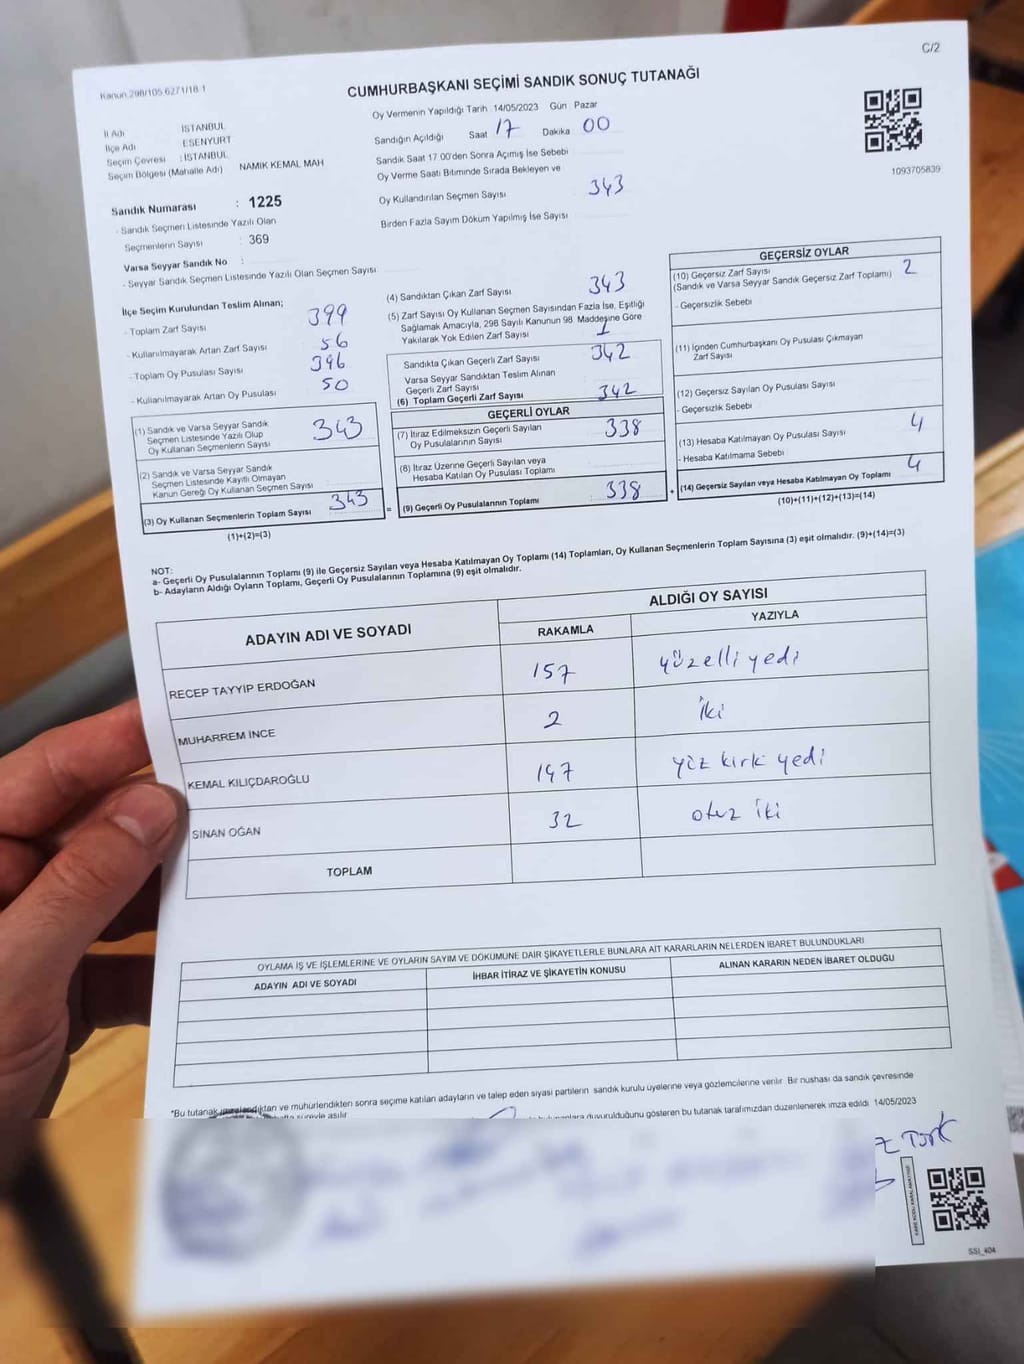 C/2
Kanun 298/105 6271/18-1
CUMHURBAŞKANI SEÇİMİ SANDIK SONUÇ TUTANAĞI
İl Adı İSTANBUL
İlçe Adı ESENYURT
Seçim Çevresi : İSTANBUL
Seçim Bölgesi (Mahalle Adı) NAMIK KEMAL MAH
Sandık Numarası : 1225
- Sandık Seçmen Listesinde Yazılı Olan
Seçmenlerin Sayısı : 369
Varsa Seyyar Sandık No :
- Seyyar Sandık Seçmen Listesinde Yazılı Olan Seçmen Sayısı
Oy Vermenin Yapıldığı Tarih 14/05/2023 Gün : Pazar
Sandığın Açıldığı Saat 17 Dakika 00
Sandık Saat 17 00'den Sonra Açımış İse Sebebi
Oy Verme Saati Bitiminde Sırada Bekleyen ve
Oy Kullandırılan Seçmen Sayısı 343
Birden Fazla Sayım Döküm Yapılmış İse Sayısı
1093705839
İlçe Seçim Kurulundan Teslim Alınan;
- Toplam Zarf Sayısı 399
- Kullanılmayarak Artan Zarf Sayısı 56
- Toplam Oy Pusulası Sayısı 396
- Kullanılmayarak Artan Oy Pusulası 50
(1) Sandık ve Varsa Seyyar Sandık
Seçmen Listesinde Yazılı Olup
Oy Kullanan Seçmenlerin Sayısı 343
(2) Sandık ve Varsa Seyyar Sandık
Seçmen Listesinde Kayıtlı Olmayan
Kanun Gereği Oy Kullanan Seçmen Sayısı
(3) Oy Kullanan Seçmenlerin Toplam Sayısı 343 =
(1)+(2)=(3)
(4) Sandıktan Çıkan Zarf Sayısı 343
(5) Zarf Sayısı Oy Kullanan Seçmen Sayısından Fazla İse, Eşitliği
Sağlamak Amacıyla, 298 Sayılı Kanunun 98. Maddesine Göre
Yakılarak Yok Edilen Zarf Sayısı 1
Sandıkta Çıkan Geçerli Zarf Sayısı 342
Varsa Seyyar Sandıktan Teslim Alınan
Geçerli Zarf Sayısı
(6) Toplam Geçerli Zarf Sayısı 342
GEÇERLİ OYLAR
(7) İtiraz Edilmeksizin Geçerli Sayılan
Oy Pusulalarının Sayısı 338
(8) İtiraz Üzerine Geçerli Sayılan veya
Hesaba Katılan Oy Pusulası Toplamı
(9) Geçerli Oy Pusulalarının Toplamı : 338 +
GEÇERSİZ OYLAR
(10) Geçersiz Zarf Sayısı
(Sandık ve Varsa Seyyar Sandık Geçersiz Zarf Toplamı) 2
- Geçersizlik Sebebi
(11) İçinden Cumhurbaşkanı Oy Pusulası Çıkmayan
Zarf Sayısı
(12) Geçersiz Sayılan Oy Pusulası Sayısı
- Geçersizlik Sebebi
(13) Hesaba Katılmayan Oy Pusulası Sayısı 4
- Hesaba Katılmama Sebebi
(14) Geçersiz Sayılan veya Hesaba Katılmayan Oy Toplamı 4
(10)+(11)+(12)+(13)=(14)
NOT:
a- Geçerli Oy Pusulalarının Toplamı (9) ile Geçersiz Sayılan veya Hesaba Katılmayan Oy Toplamı (14) Toplamları, Oy Kullanan Seçmenlerin Toplam Sayısına (3) eşit olmalıdır. (9)+(14)=(3)
b- Adayların Aldığı Oyların Toplamı, Geçerli Oy Pusulalarının Toplamına (9) eşit olmalıdır.
ADAYIN ADI VE SOYADI ALDIĞI OY SAYISI
RAKAMLA YAZIYLA
RECEP TAYYİP ERDOĞAN 157 yüzelli yedi
MUHARREM İNCE 2 iki
KEMAL KILIÇDAROĞLU 147 yüz kırk yedi
SİNAN OĞAN 32 otuz iki
TOPLAM
OYLAMA İŞ VE İŞLEMLERİNE VE OYLARIN SAYIM VE DÖKÜMÜNE DAİR ŞİKAYETLERLE BUNLARA AİT KARARLARIN NELERDEN İBARET BULUNDUKLARI
ADAYIN ADI VE SOYADI İHBAR İTİRAZ VE ŞİKAYETİN KONUSU ALINAN KARARIN NEDEN İBARET OLDUĞU
*Bu tutanak imzalandıktan ve mühürlendikten sonra seçime katılan adayların ve talep eden siyasi partilerin sandık kurulu üyelerine veya gözlemcilerine verilir Bir nushası da sandık çevresinde
süreyle asılır duyurulduğunu gösteren bu tutanak tarafımızdan düzenlenerek imza edildi 14/05/2023
SSI_404